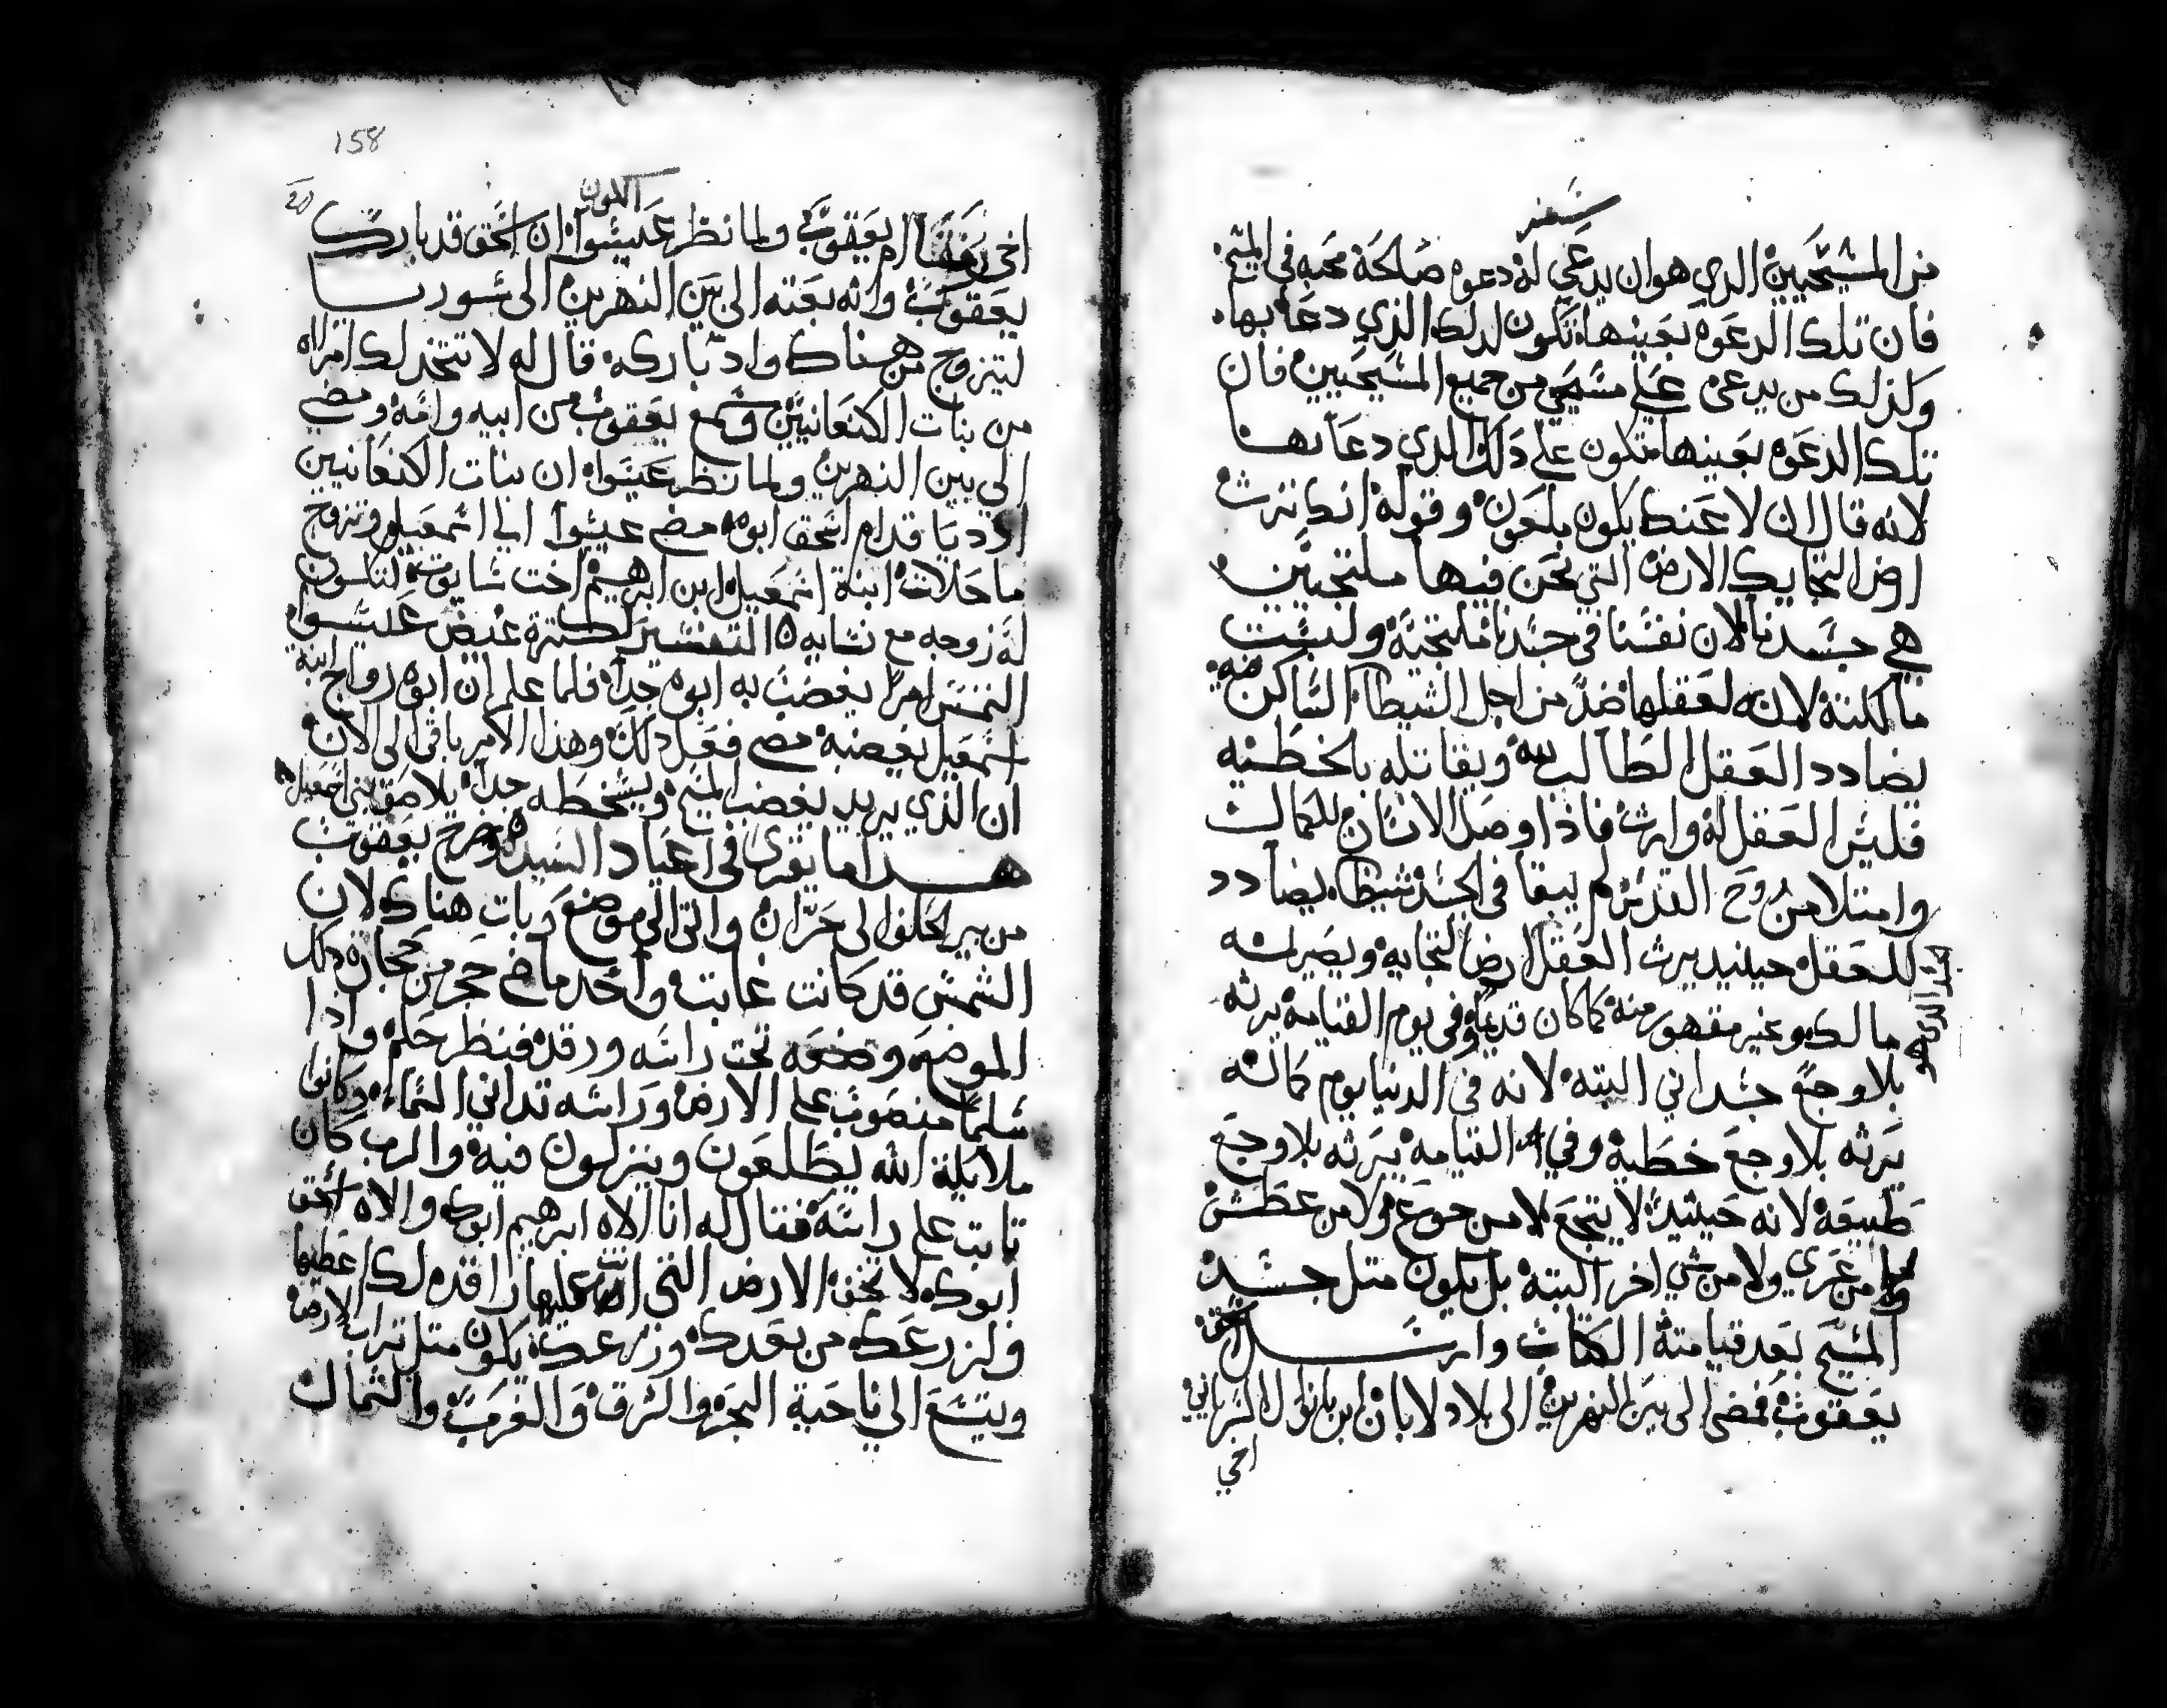 سفر
من المسيحيين الدي هو ان يدعي له دعوه صالحة محبه في المسيح
فان تلك الدعوه بعينها تكون لدلك الذي دعا بها
وكذلك من يدعي علي مسيحي من جميع المسيحيين فان
تلك الدعوه بعينها تكون علي دلك الدي دعا بها
لانه قال ان لاعنك يكون ملعون وقوله انك ترث
ارض التجا يك الارض التي نحن فيها ملتجيين
هي جسدنا لان نفسنا في جسدنا ملتجية وليست
مالكته لانه لعقلها ضد من اجل الشيطان الساكن فيه
يضادد العقل الطالب لله ويقاتله بالخطيه
فليس العقل له وارث فاذا وصل الانسان للكمال
وامتلا من روح القدس لم يبقا في الجسد شيطان يضادد
للعقل حينيد يرث العقل ارض التجايه ويصير له
جسد الدي هو
مالك وغير مقهور منه كما كان قديما وفي يوم القيامه يرثه
بلا وجع جسداني البته لانه في الدنيا يوم كماله
يرثه بلا وجع خطية وفي القيامه يرثه بلا وجع
طبيعه لانه حينيد لا يتجع لا من جوع ولا من عطش
ولا من عري ولا من شي اخر البته بل يكون متل جسد
المسيح بعد قيامته الكتاب وارسل اسحق
يعقوب فمضى الى بين النهرين الى بلاد لابان ابن باتوال السرياني
اخي
158
التكوين
اخي رفقا ام يعقوب ولما نظر عيسوا ان اسحق قد بارك
يعقوب وانه بعته الى بين النهرين الى سوريا
ليتزوج من هناك واد باركه قال له لا تتخد لك امراه
من بنات الكنعانيين وسمع يعقوب من ابيه وامه ومضي
الي بين النهرين ولما نظر عيسوا ان بنات الكنعانيين
ارديا قدام اسحق ابوه مضي عيسوا الي اسمعيل وتزوج
ماحلات ابنة اسمعيل ابن ابرهيم اخت نبايوت لتكون
له زوجه مع نسايه التفسير لكترة غيض عيسوا
التمس امرا يغضب به ابوه جدا فلما علم ان ابوه زواج ابنة
اسمعيل يغضبه مضى فعل دلك وهذا الامر باقي الى الان
ان الذي يريد يغضب المسيح ويسخطه جدا يلاصق بني اسمعيل
هدا ما يقرى في اعياد السيده وخرج يعقوب
من بير الحلف الى حران واتى الى موضع وبات هناك لان
الشمس قد كانت غابت واخد ماخي حجر من حجارة دلك
الموضع ووضعه تحت راسه ورقد فنظر حلم وادا
سلما منصوب على الارض وراسه تداني السماء وكانوا
ملايكة الله يطلعون وينزلون فيه والرب كان
تابت على راسه فقال له انا الاه ابرهيم ابوك والاه اسحق
ابوك لا تخف الارض التي انت عليها راقد لك اعطيها
ولزرعك من بعدك وزرعك يكون متل تراب الارض
ويتسع الي ناحية البحر والشرق والغرب والشمال